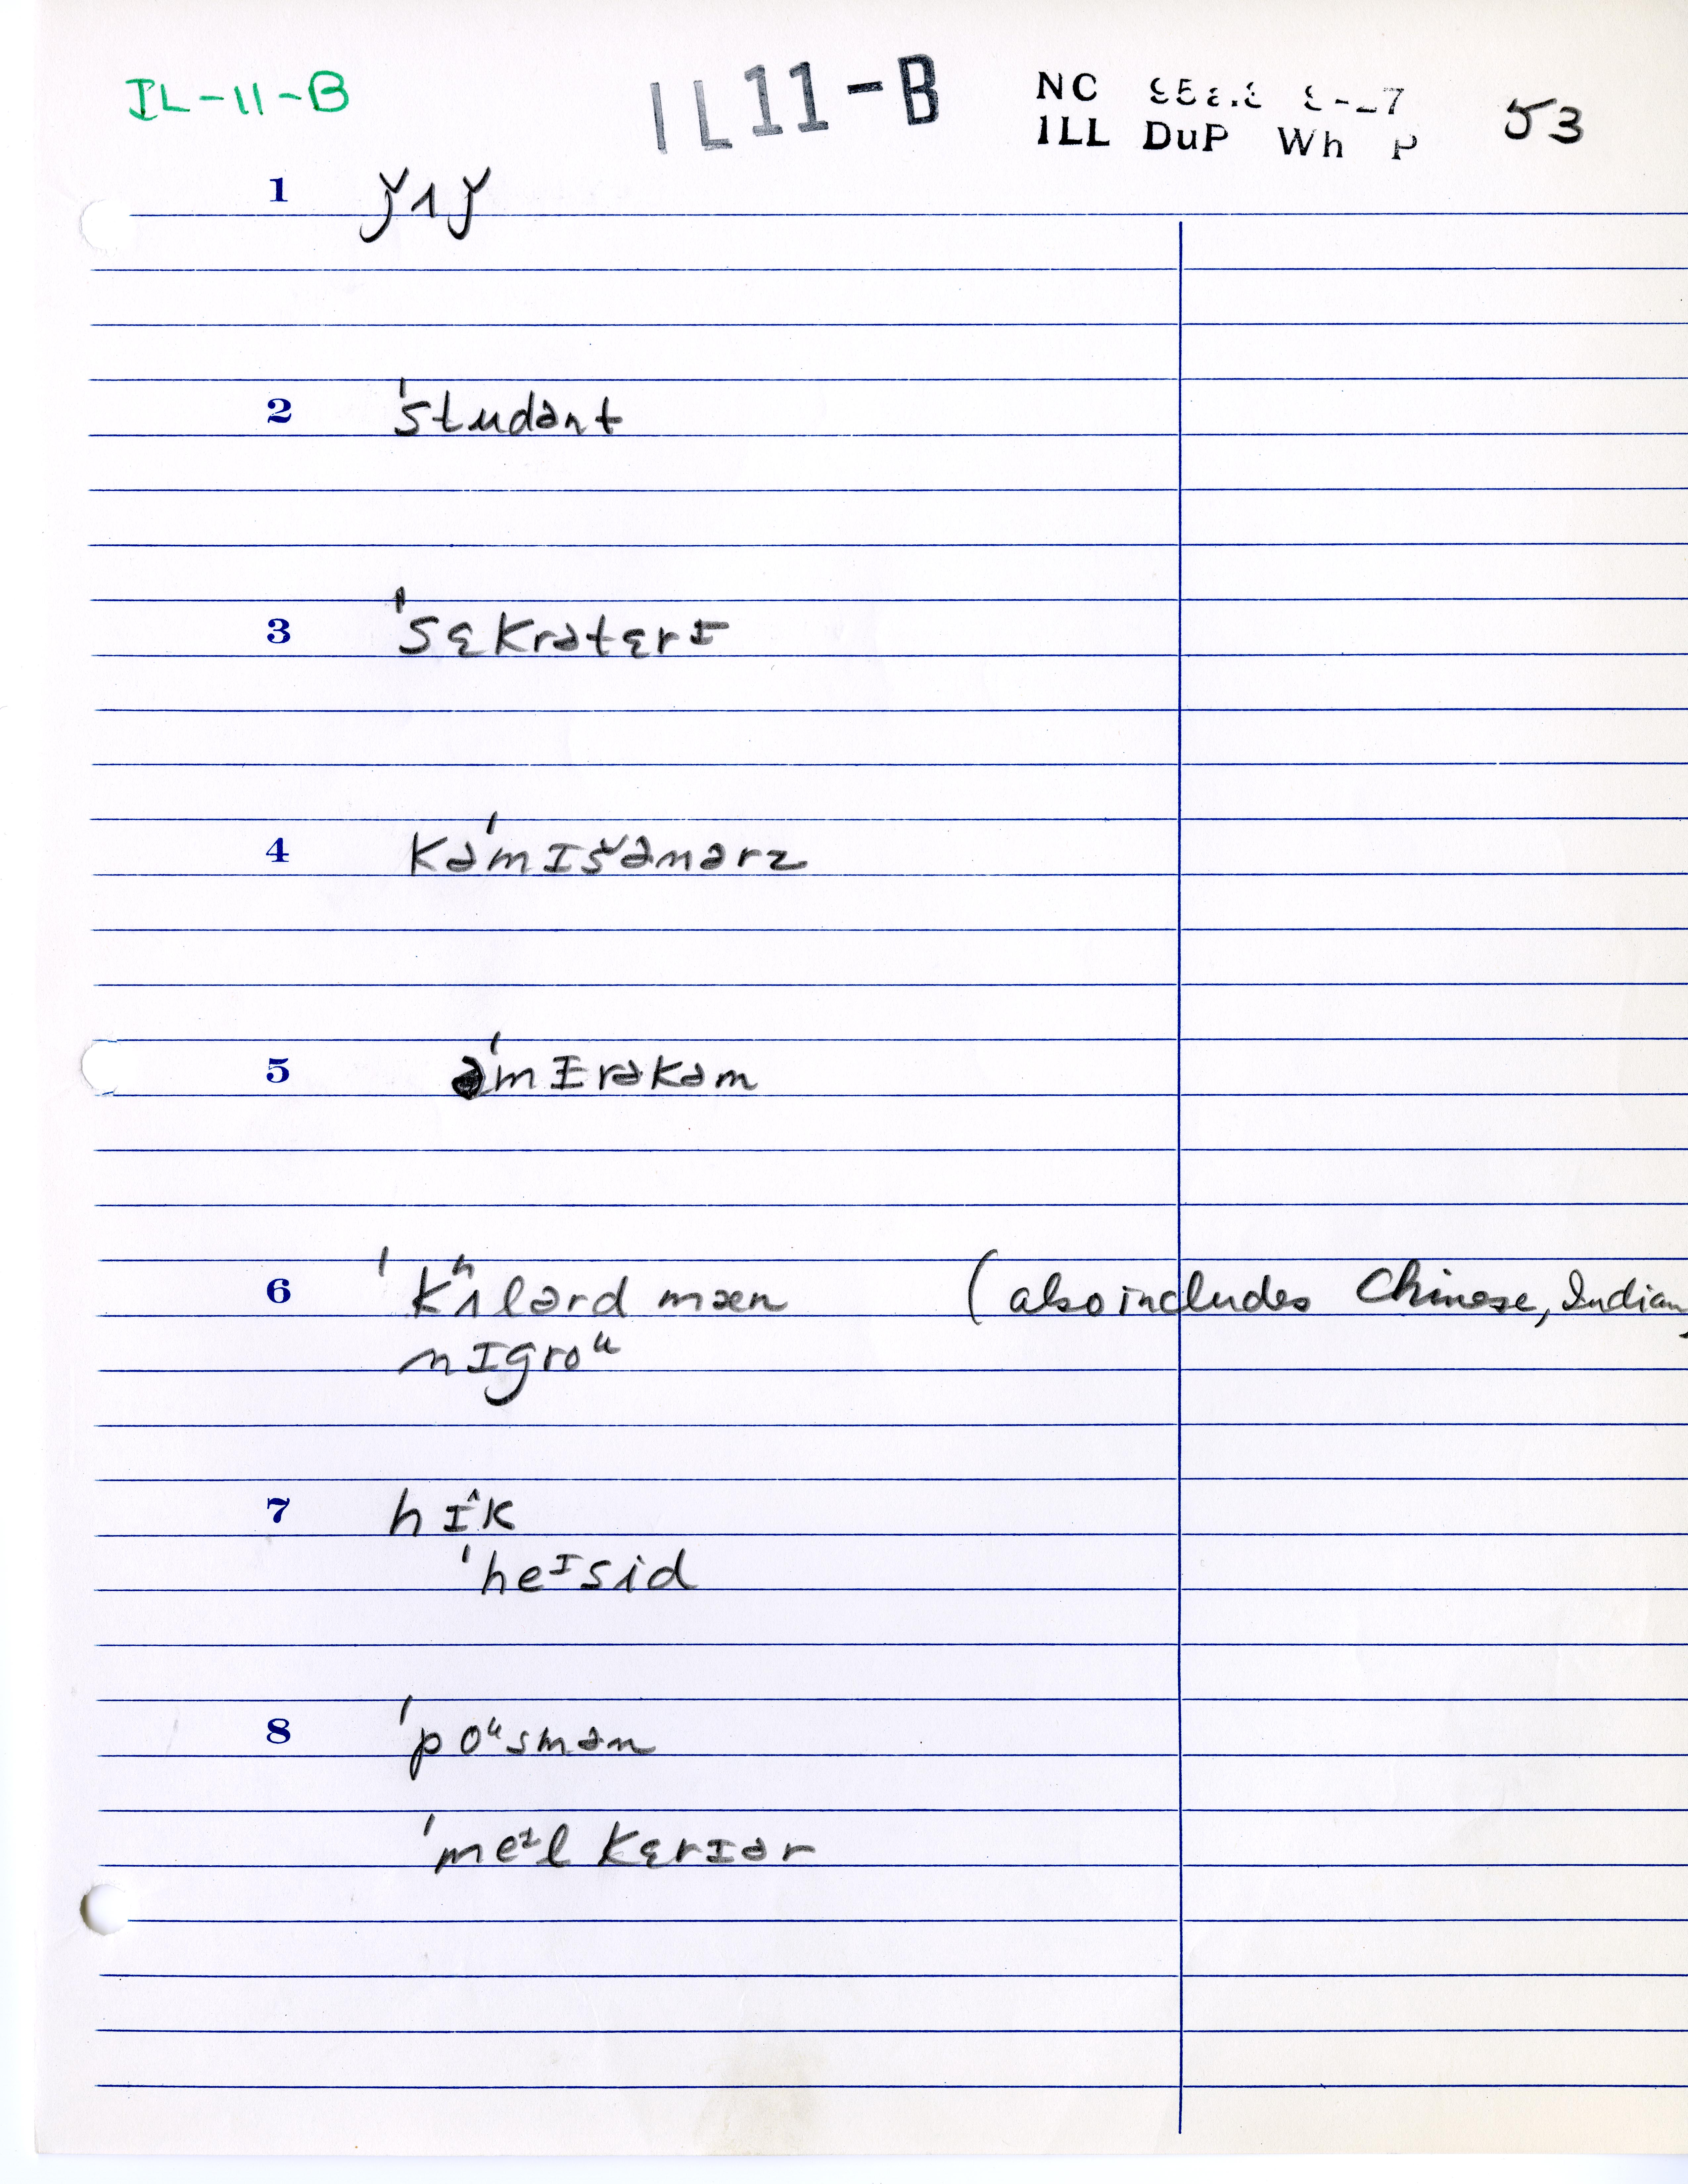 IL-11-B
IL11-B
NC
ILL DuP Wh P
53
1 ǰʌǰ
2 ˈstudənt
3 ˈsɛkrətɛrɪ
4 kəˈmɪšənərz
5 əˈmɛrəkəm
6 ˈkʌlərd mæn (also includes Chinese, Indian,
nɪgroᵘ
7 hɪ^k
ˈheᶦsid
8 ˈpoᵘsmən
ˈmeᶦl kɛrɪər